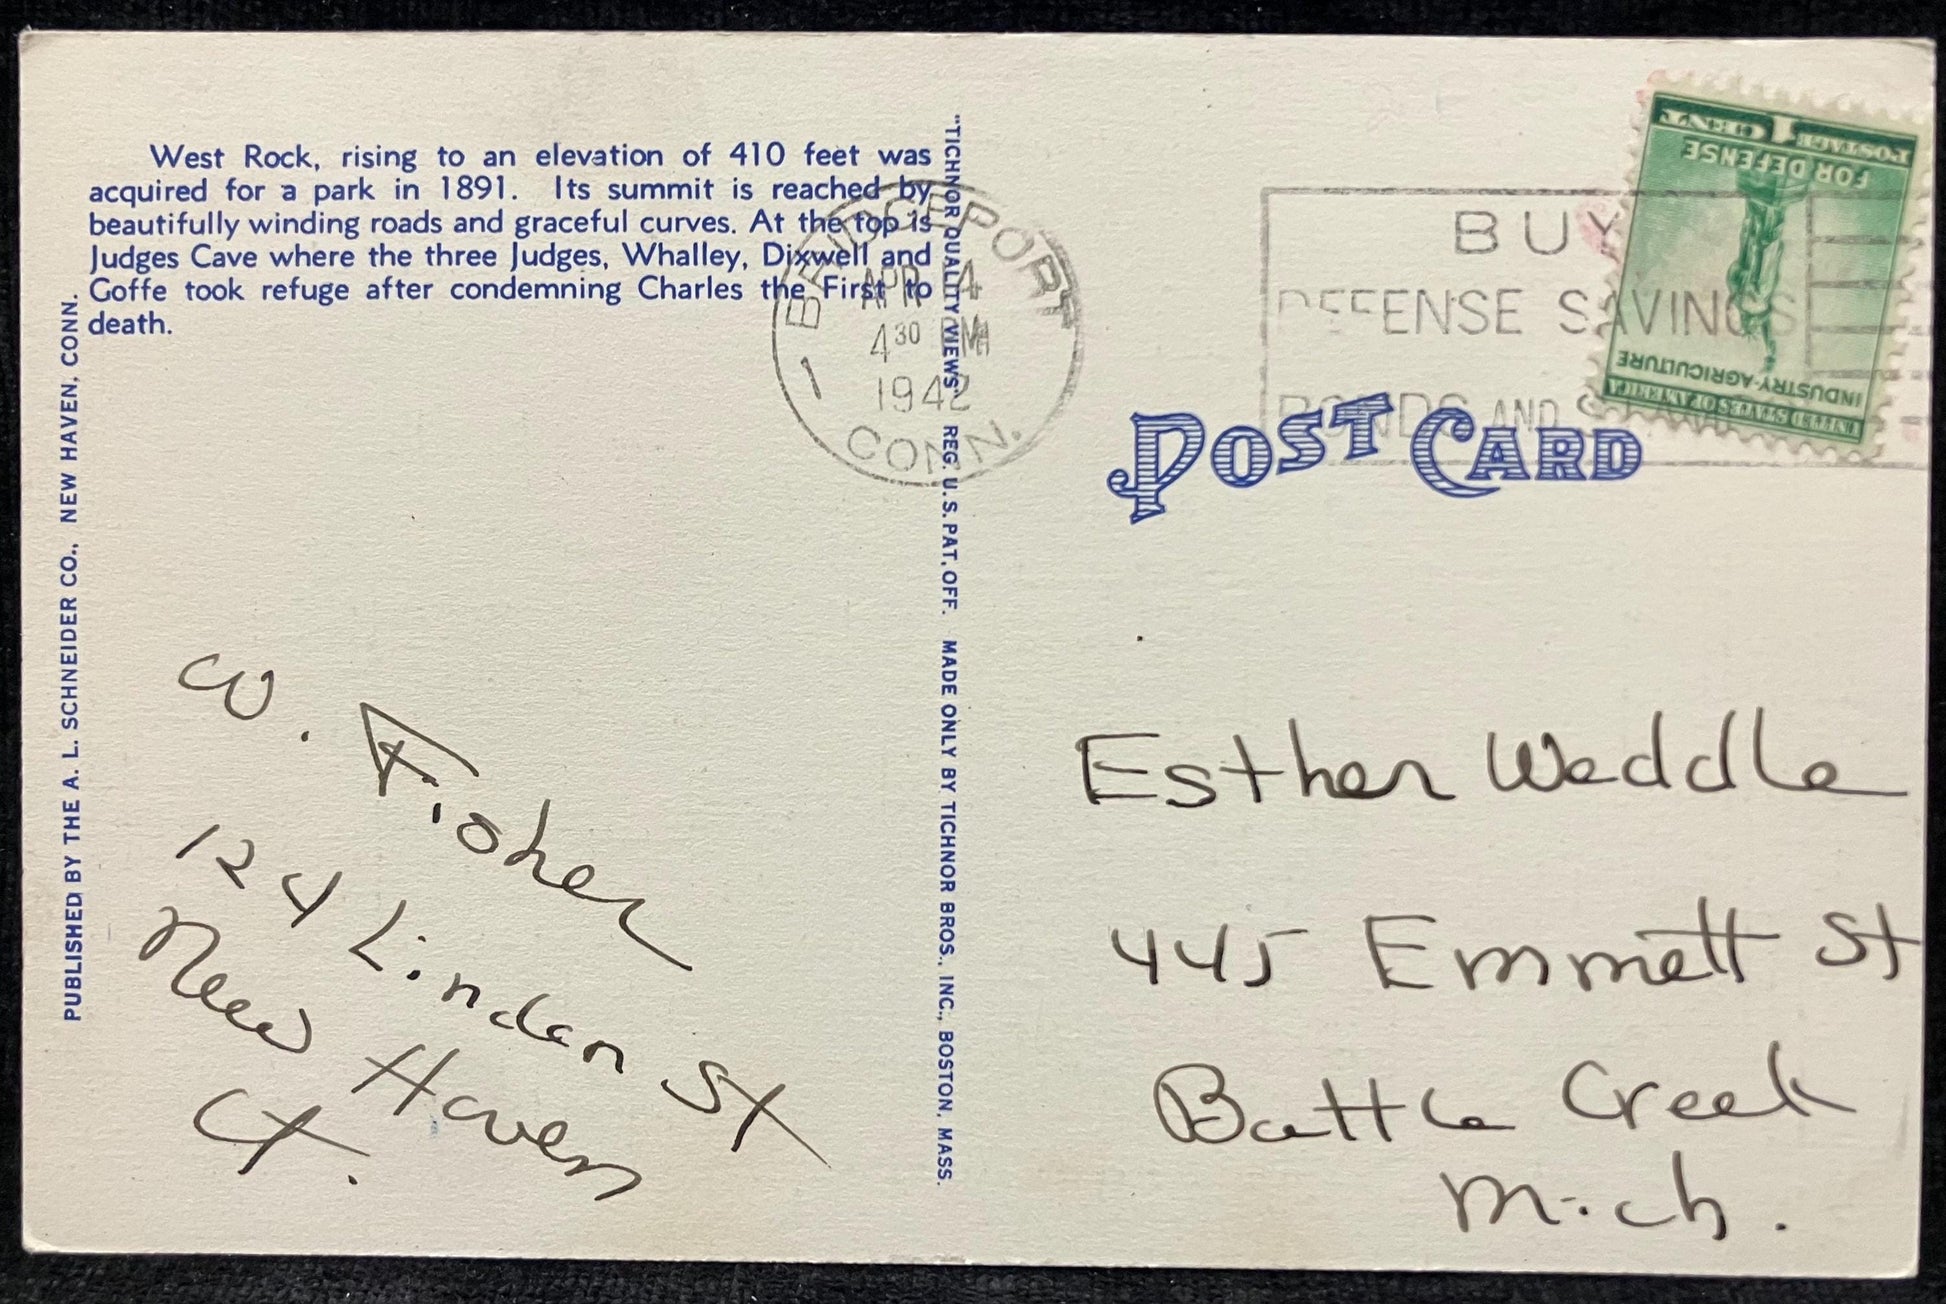 West Rock, rising to an elevation of 410 feet was
acquired for a park in 1891. Its summit is reached by
beautifully winding roads and graceful curves. At the top is
Judges Cave where the three Judges, Whalley, Dixwell and
Goffe took refuge after condemning Charles the First to
death.
PUBLISHED BY THE A. L. SCHNEIDER CO., NEW HAVEN, CONN.
"TICHNOR QUALITY VIEWS" REG. U. S. PAT. OFF. MADE ONLY BY TICHNOR BROS., INC., BOSTON, MASS.
BRIDGEPORT
APR 4
4 30 PM
1942
1
CONN.
BUY
DEFENSE SAVINGS
BONDS AND STAMPS
1 CENT 1
POSTAGE
FOR DEFENSE
INDUSTRY-AGRICULTURE
UNITED STATES OF AMERICA
POST CARD
W. Fisher
124 Linden St
New Haven
Ct.
Esther Weddle
445 Emmett St
Battle Creek
Mich.